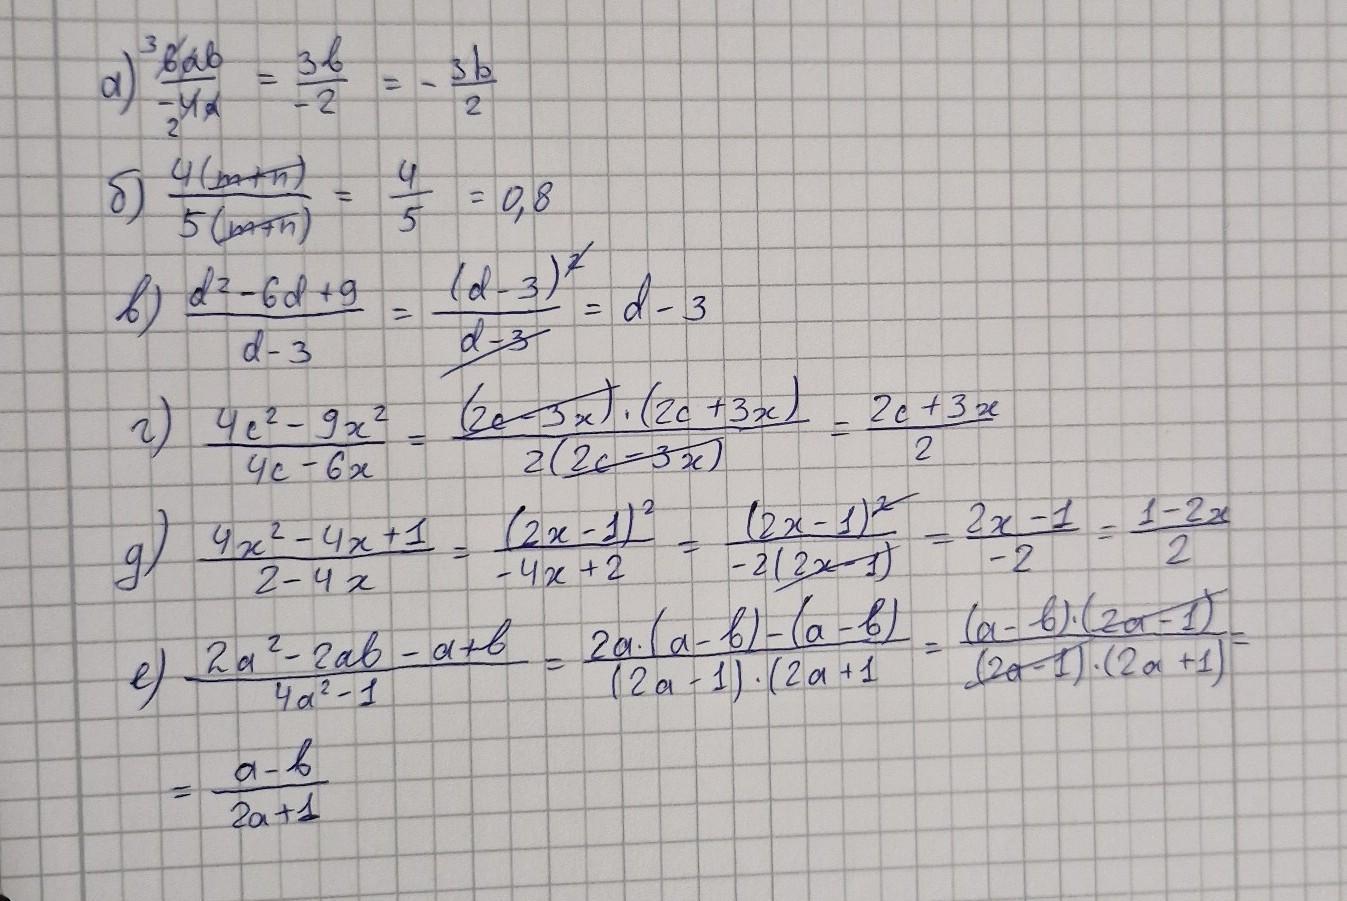 а) ³6ab/-4a₂ = 3b/-2 = - 3b/2
б) 4(m+n)/5(m+n) = 4/5 = 0,8
в) d²-6d+9/d-3 = (d-3)²/d-3 = d-3
г) 4c²-9x²/4c-6x = (2c-3x)·(2c+3x)/2(2c-3x) = 2c+3x/2
д) 4x²-4x+1/2-4x = (2x-1)²/-4x+2 = (2x-1)²/-2(2x-1) = 2x-1/-2 = 1-2x/2
е) 2a²-2ab-a+b/4a²-1 = 2a·(a-b)-(a-b)/(2a-1)·(2a+1 = (a-b)·(2a-1)/(2a-1)·(2a+1) =
= a-b/2a+1